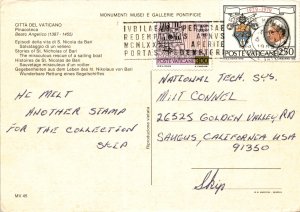 MONUMENTI MUSEI E GALLERIE PONTIFICIE
CITTÀ DEL VATICANO
Pinacoteca
Beato Angelico (1387 - 1455)
Episodi della vita di S. Nicola da Bari
Salvataggio di un veliero
Stories of St. Nicholas of Bari
The miraculous rescue of a sailing vessel
Histoires de St. Nicolas de Bari
Sauvetage d'un voilier
Begebenheiten aus dem Leben des hl. Nikolaus von Bari
Wunderbare Rettung eines Segelschiffes
IVBILAEVM
REDEMPTIONIS ANNO
MCMLXXXIII APERITE
PORTAS
POSTE VATICANE 250
HE MELT
ANOTHER STAMP
FOR THE COLLECTION
SKIP
NATIONAL TECH. SYS.
MITT CONNEL
26525 GOLDEN VALLEY RD
SAUGUS, CALIFORNIA USA
91350
Skip
MV.45